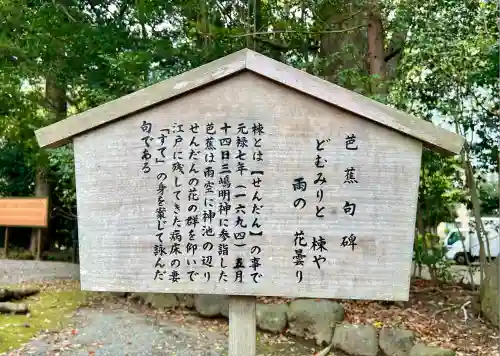 芭蕉句碑
どむみりと 棟や
雨の 花曇り
棟とは【せんだん】の事で
元禄七年（一六九四）五月
十四日三嶋明神に参詣した
芭蕉は雨空に神池の辺り
せんだんの花の群を仰いで
江戸に残してきた病床の妻
「すて」の身を案じて詠んだ
句である